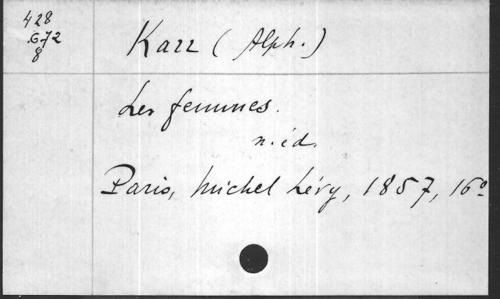 428
G.72
8
Karr (Alph.)
Les femmes.
n. éd.
Paris, Michel Lévy, 1857, 16º